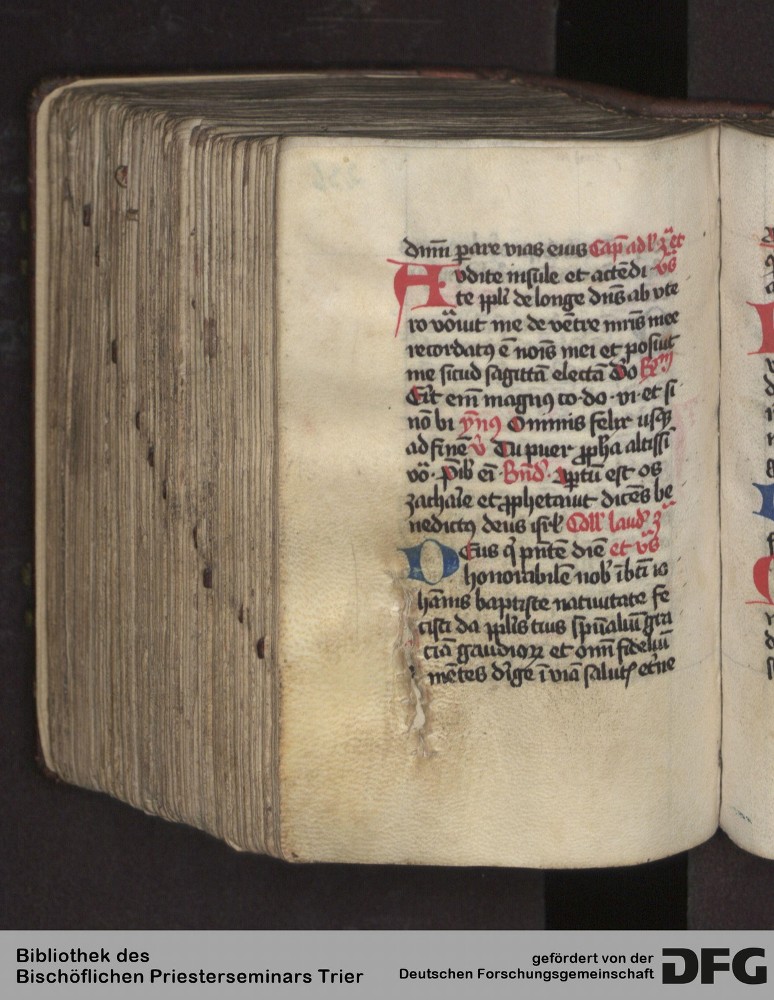 dnm̄ ꝑare vias eius Cap̄ ad l' ꝫ et
Audite insule et attēdi vs̄
te pp̄li de longe dn̄s ab vte
ro vo͞uit me de vētre mr̄is mee
recordatꝰ ē nois mei et posuit
me sicud sagittā electā Do
Erit em̄ magnꝰ co· do· vi· et si
nō bi ẏn̄ꝰ O nimis felix usqꝫ
ad finē v̄ Tu puer ꝓph̄a altissi
vo· P̄ib' ei· Bn̄d' Aꝑtū est os
zacharie et ꝓphetauit dicēs be
nedictꝰ deus isrl' Coll' laud' ꝫ
Deus qͥ pn̄tē diē et vs̄
honorabilē nob' ī bt̄i io
hānis baptiste natiuitate fe
cisti da pp̄lis tuis sp̄ualiū gra
ciā gaudioꝝ et om̄ fideliū
mētes dirige ī viā salutꝭ et̄ne
Bibliothek des
Bischöflichen Priesterseminars Trier
gefördert von der
Deutschen Forschungsgemeinschaft
DFG